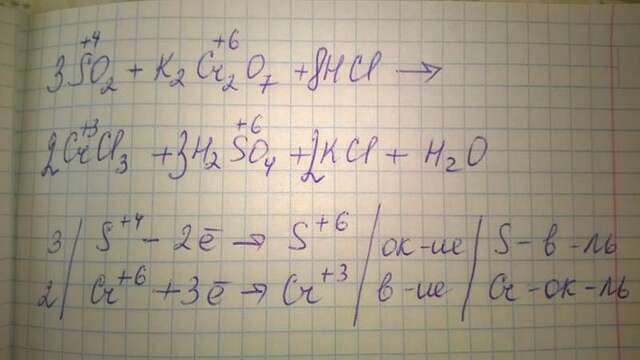 3S⁺⁴O₂ + K₂Cr₂⁺⁶O₇ + 8HCl →
2Cr⁺³Cl₃ + 3H₂S⁺⁶O₄ + 2KCl + H₂O
3 | S⁺⁴ - 2ē → S⁺⁶ | ок-ие | S - в-ль
2 | Cr⁺⁶ + 3ē → Cr⁺³ | в-ие | Cr - ок-ль